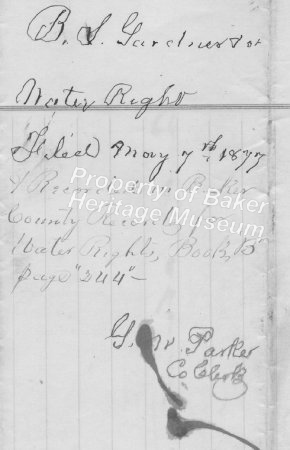 B. S. Gardner &
Water Right
Filed May 7th 1877
& Recorded in Baker
County Records of
Water Rights, Book "B"
page "344" —
G. W. Parker
Co Clerk
Property of Baker
Heritage Museum